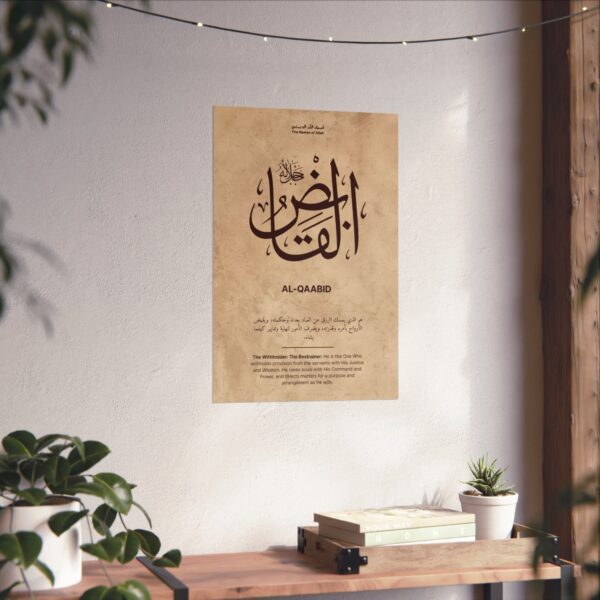 أسماء الله الحسنى
The Names of Allah
القابض
جل جلاله
AL-QAABID
هو الذي يمسك الرزق عن العباد بعدله وحكمته، ويقبض
الأرواح بأمره وقدرته، ويصرف الأمور لنهاية وتدابير كيفما
يشاء.
The Withholder: The Restrainer: He is the One Who
withholds provision from the servants with His Justice
and Wisdom, He takes souls with His Command and
Power, and directs matters for a purpose and
arrangement as He wills.
HOME